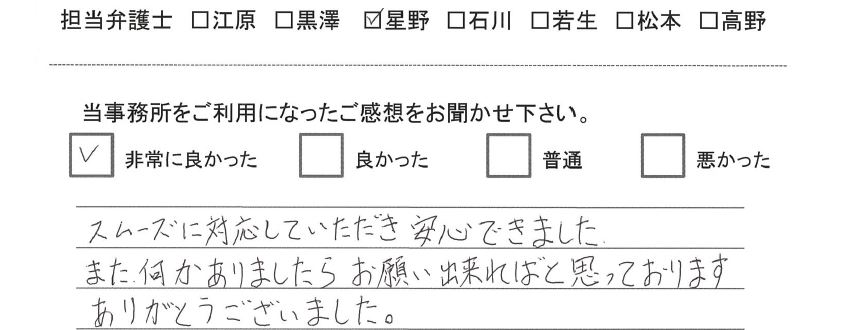 担当弁護士 □江原 □黒澤 ☑星野 □石川 □若生 □松本 □高野
当事務所をご利用になったご感想をお聞かせ下さい。
☑ 非常に良かった □ 良かった □ 普通 □ 悪かった
スムーズに対応していただき安心できました.
また.何かありましたらお願い出来ればと思っております
ありがとうございました。